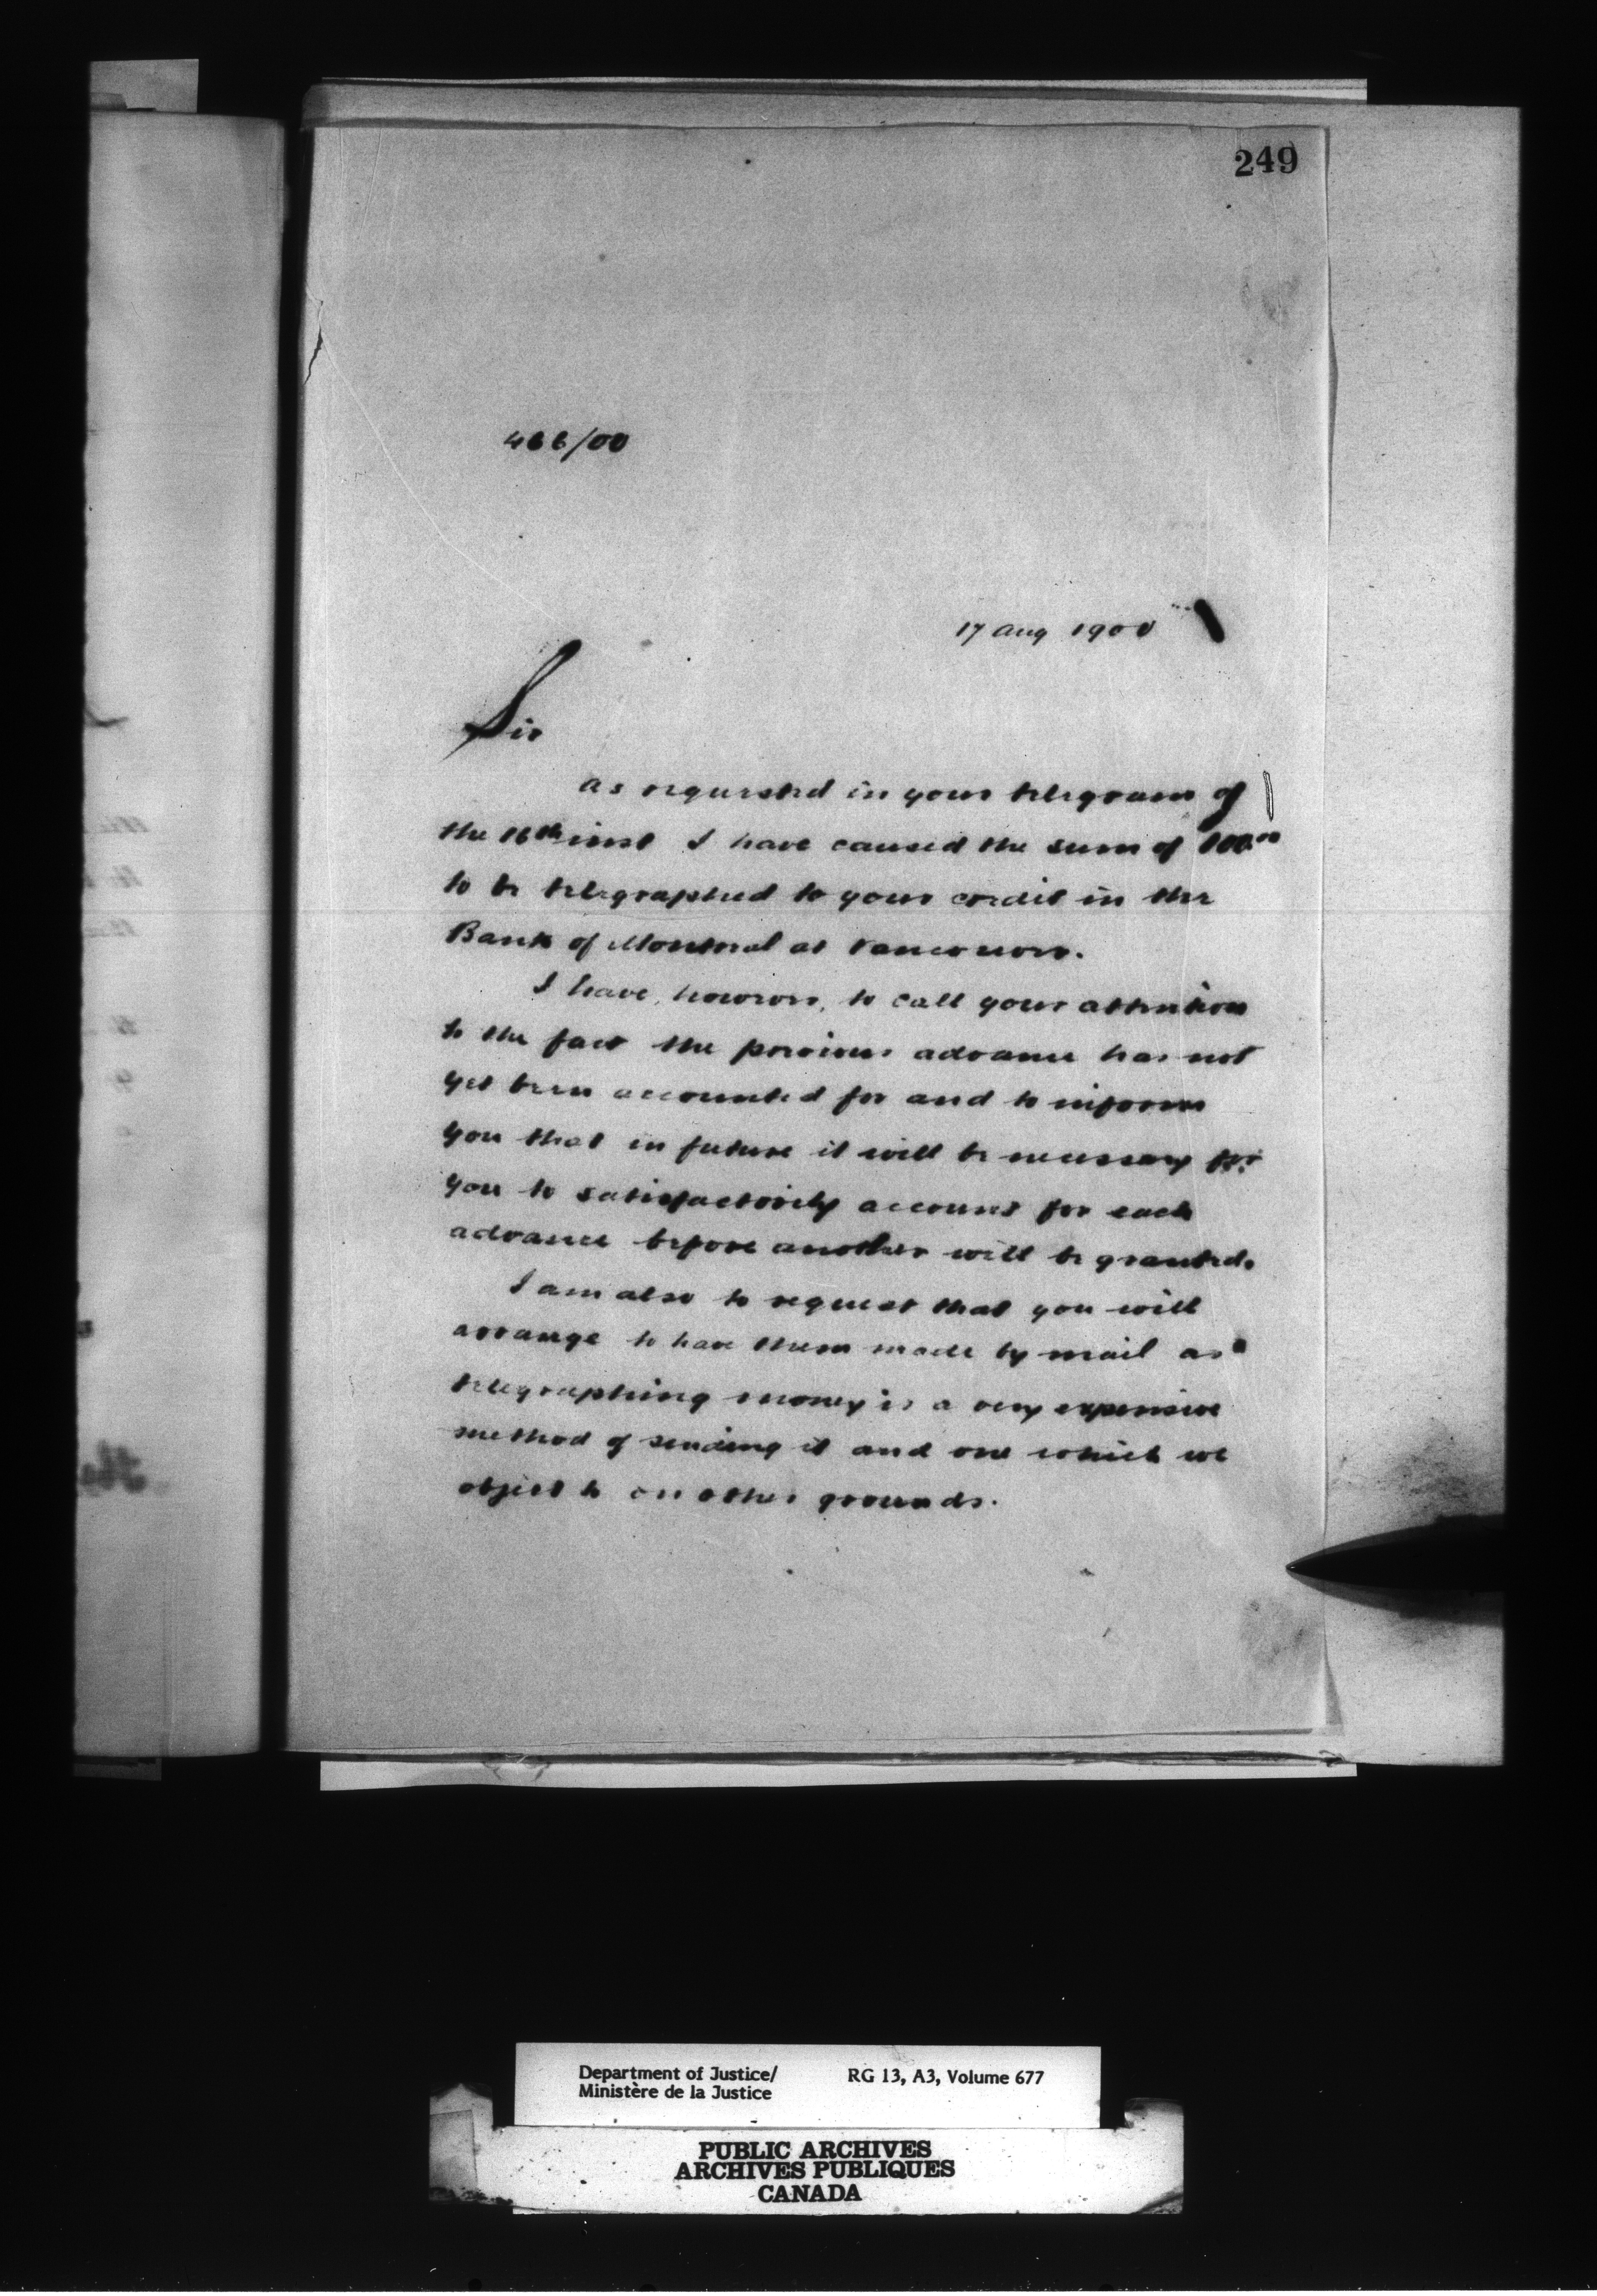 249
466/00
17 Aug 1900
Sir
As requested in your telegram of
the 16th inst I have caused the sum of 100.00
to be telegraphed to your credit in the
Bank of Montreal at Vancouver.
I have, however, to call your attention
to the fact the previous advance has not
yet been accounted for and to inform
you that in future it will be necessary for
you to satisfactorily account for each
advance before another will be granted.
I am also to request that you will
arrange to have them made by mail as
telegraphing money is a very expensive
method of sending it and one which we
object to on other grounds.
Department of Justice/ RG 13, A3, Volume 677
Ministère de la Justice
PUBLIC ARCHIVES
ARCHIVES PUBLIQUES
CANADA